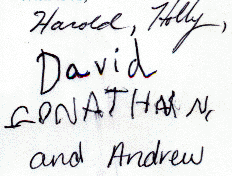 Harold, Holly,
David
JONATHAN,
and Andrew